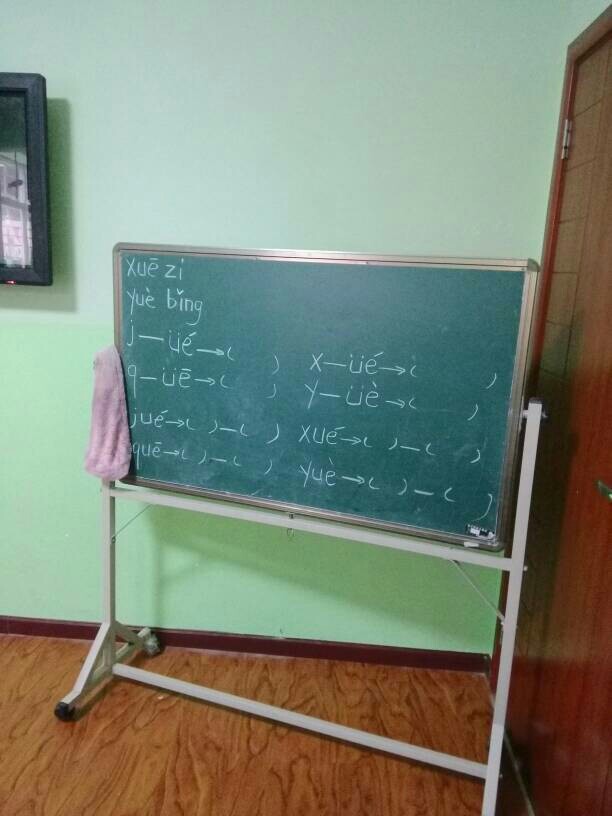 xuē zi
yuè bǐng
j—üé→( ) x—üé→( )
q—üē→( ) y—üè→( )
jué→( )—( ) xué→( )—( )
quē→( )—( ) yuè→( )—( )